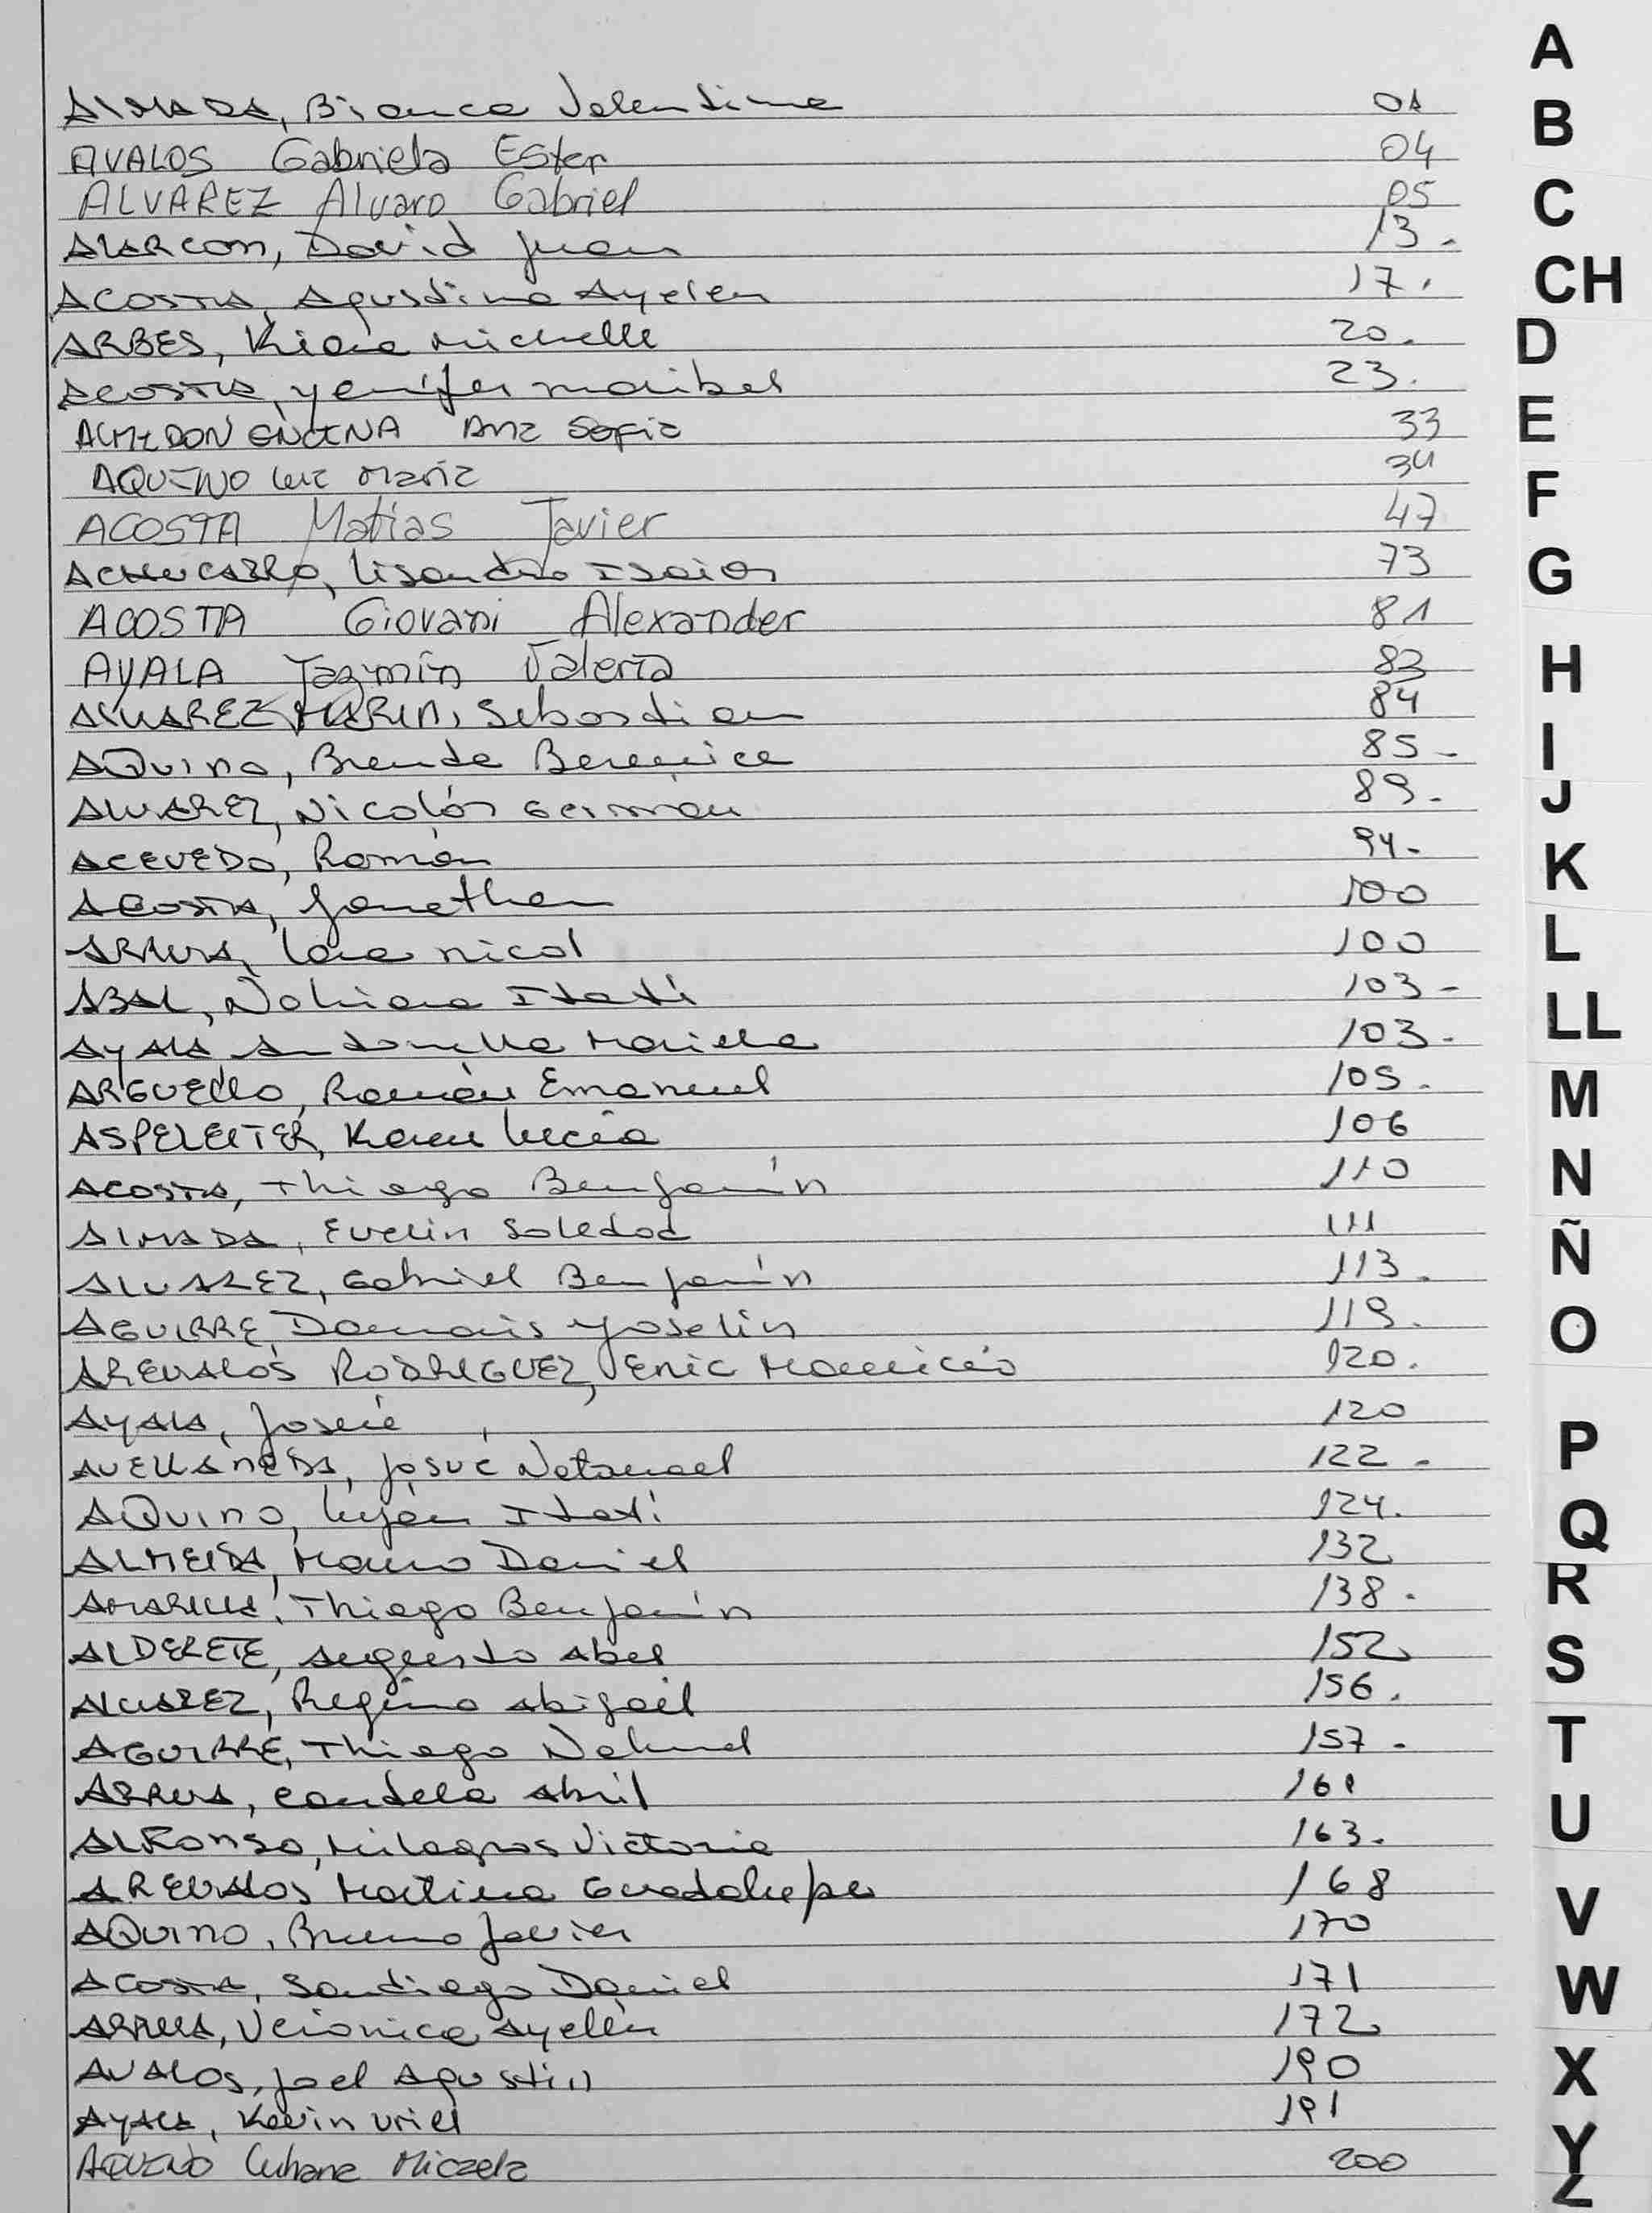 ALMADA, Bianca Valentina 01
AVALOS Gabriela Ester 04
ALVAREZ Alvaro Gabriel 05
ALARCON, David Juan 13.
ACOSTA, Agustina Ayelen 17.
ARBES, Kiara Michelle 20.
ACOSTA, Yenifer Maribel 23.
ALMIRON ENCINA Ana Sofia 33
AQUINO Luz Maria 34
ACOSTA Matias Javier 47
ACHUCARRO, Lisandro Isaias 73
ACOSTA Giovani Alexander 81
AYALA Jazmín Valeria 83
ALVAREZ MARIN, Sebastian 84
AQUINO, Brenda Berenice 85-
ALVAREZ, Nicolás German 89.
ACEVEDO, Román 94-
ACOSTA, Jonathan 100
ARRUA, Lara Nicol 100
ABAL, Nahiara Itatí 103-
AYALA Antonella Mariela 103.
ARGUELLO, Román Emanuel 105.
ASPELEITER, Karen Lucía 106
ACOSTA, Thiago Benjamín 110
ALMADA, Evelin Soledad 111
ALVAREZ, Gabriel Benjamín 113.
AGUIRRE Damaris Yoselin 119.
AREVALOS RODRIGUEZ, Eric Mauricio 120.
AYALA, José 120
AVELLANEDA, Josué Natanael 122-
AQUINO, Luján Itatí 124.
ALMEIDA, Mauro Daniel 132
AMARILLA, Thiago Benjamín 138.
ALDERETE, Augusto Abel 152
ALVAREZ, Regina Abigail 156.
AGUIRRE, Thiago Nahuel 157-
ARRUA, Candela Abril 161
ALFONSO, Milagros Victoria 163.
AREVALOS Martina Guadalupe 168
AQUINO, Bruno Javier 170
ACOSTA, Santiago Daniel 171
ARRUA, Veronica Ayelén 172
AVALOS, Joel Agustin 190
AYALA, Kevin Uriel 191
AQUINO Micaela 200
A
B
C
CH
D
E
F
G
H
I
J
K
L
LL
M
N
Ñ
O
P
Q
R
S
T
U
V
W
X
Y
Z